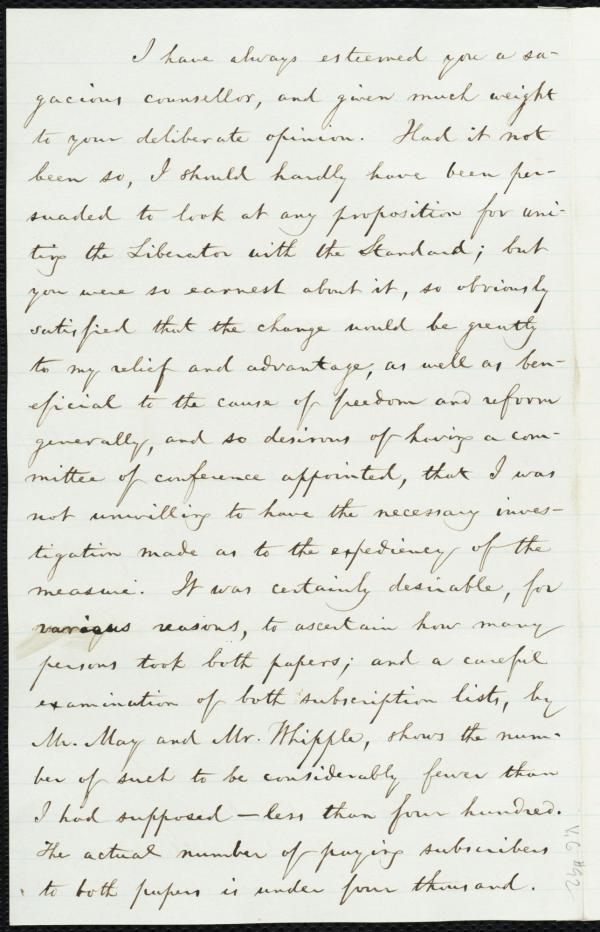 I have always esteemed you a sa-
gacious counsellor, and given much weight
to your deliberate opinion. Had it not
been so, I should hardly have been per-
suaded to look at any proposition for uni-
ting the Liberator with the Standard; but
you were so earnest about it, so obviously
satisfied that the change would be greatly
to my relief and advantage, as well as ben-
eficial to the cause of freedom and reform
generally, and so desirous of having a com-
mittee of conference appointed, that I was
not unwilling to have the necessary inves-
tigation made as to the expediency of the
measure. It was certainly desirable, for
various reasons, to ascertain how many
persons took both papers; and a careful
examination of both subscription lists, by
Mr. May and Mr. Whipple, shows the num-
ber of such to be considerably fewer than
I had supposed — less than four hundred.
The actual number of paying subscribers
to both papers is under four thousand.
V.6 #92